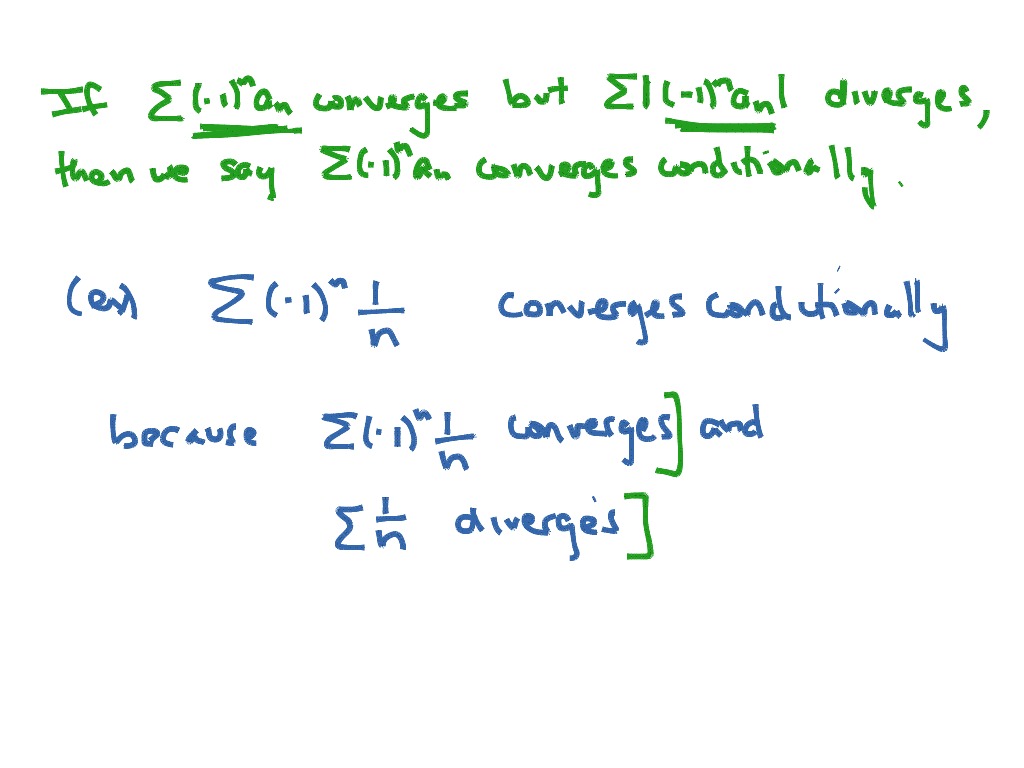 If Σ(-1)ⁿaₙ converges but Σ|(-1)ⁿaₙ| diverges,
then we say Σ(-1)ⁿaₙ converges conditionally.
(ex) Σ(-1)ⁿ 1/n converges conditionally
because Σ(-1)ⁿ 1/n converges] and
Σ 1/n diverges]